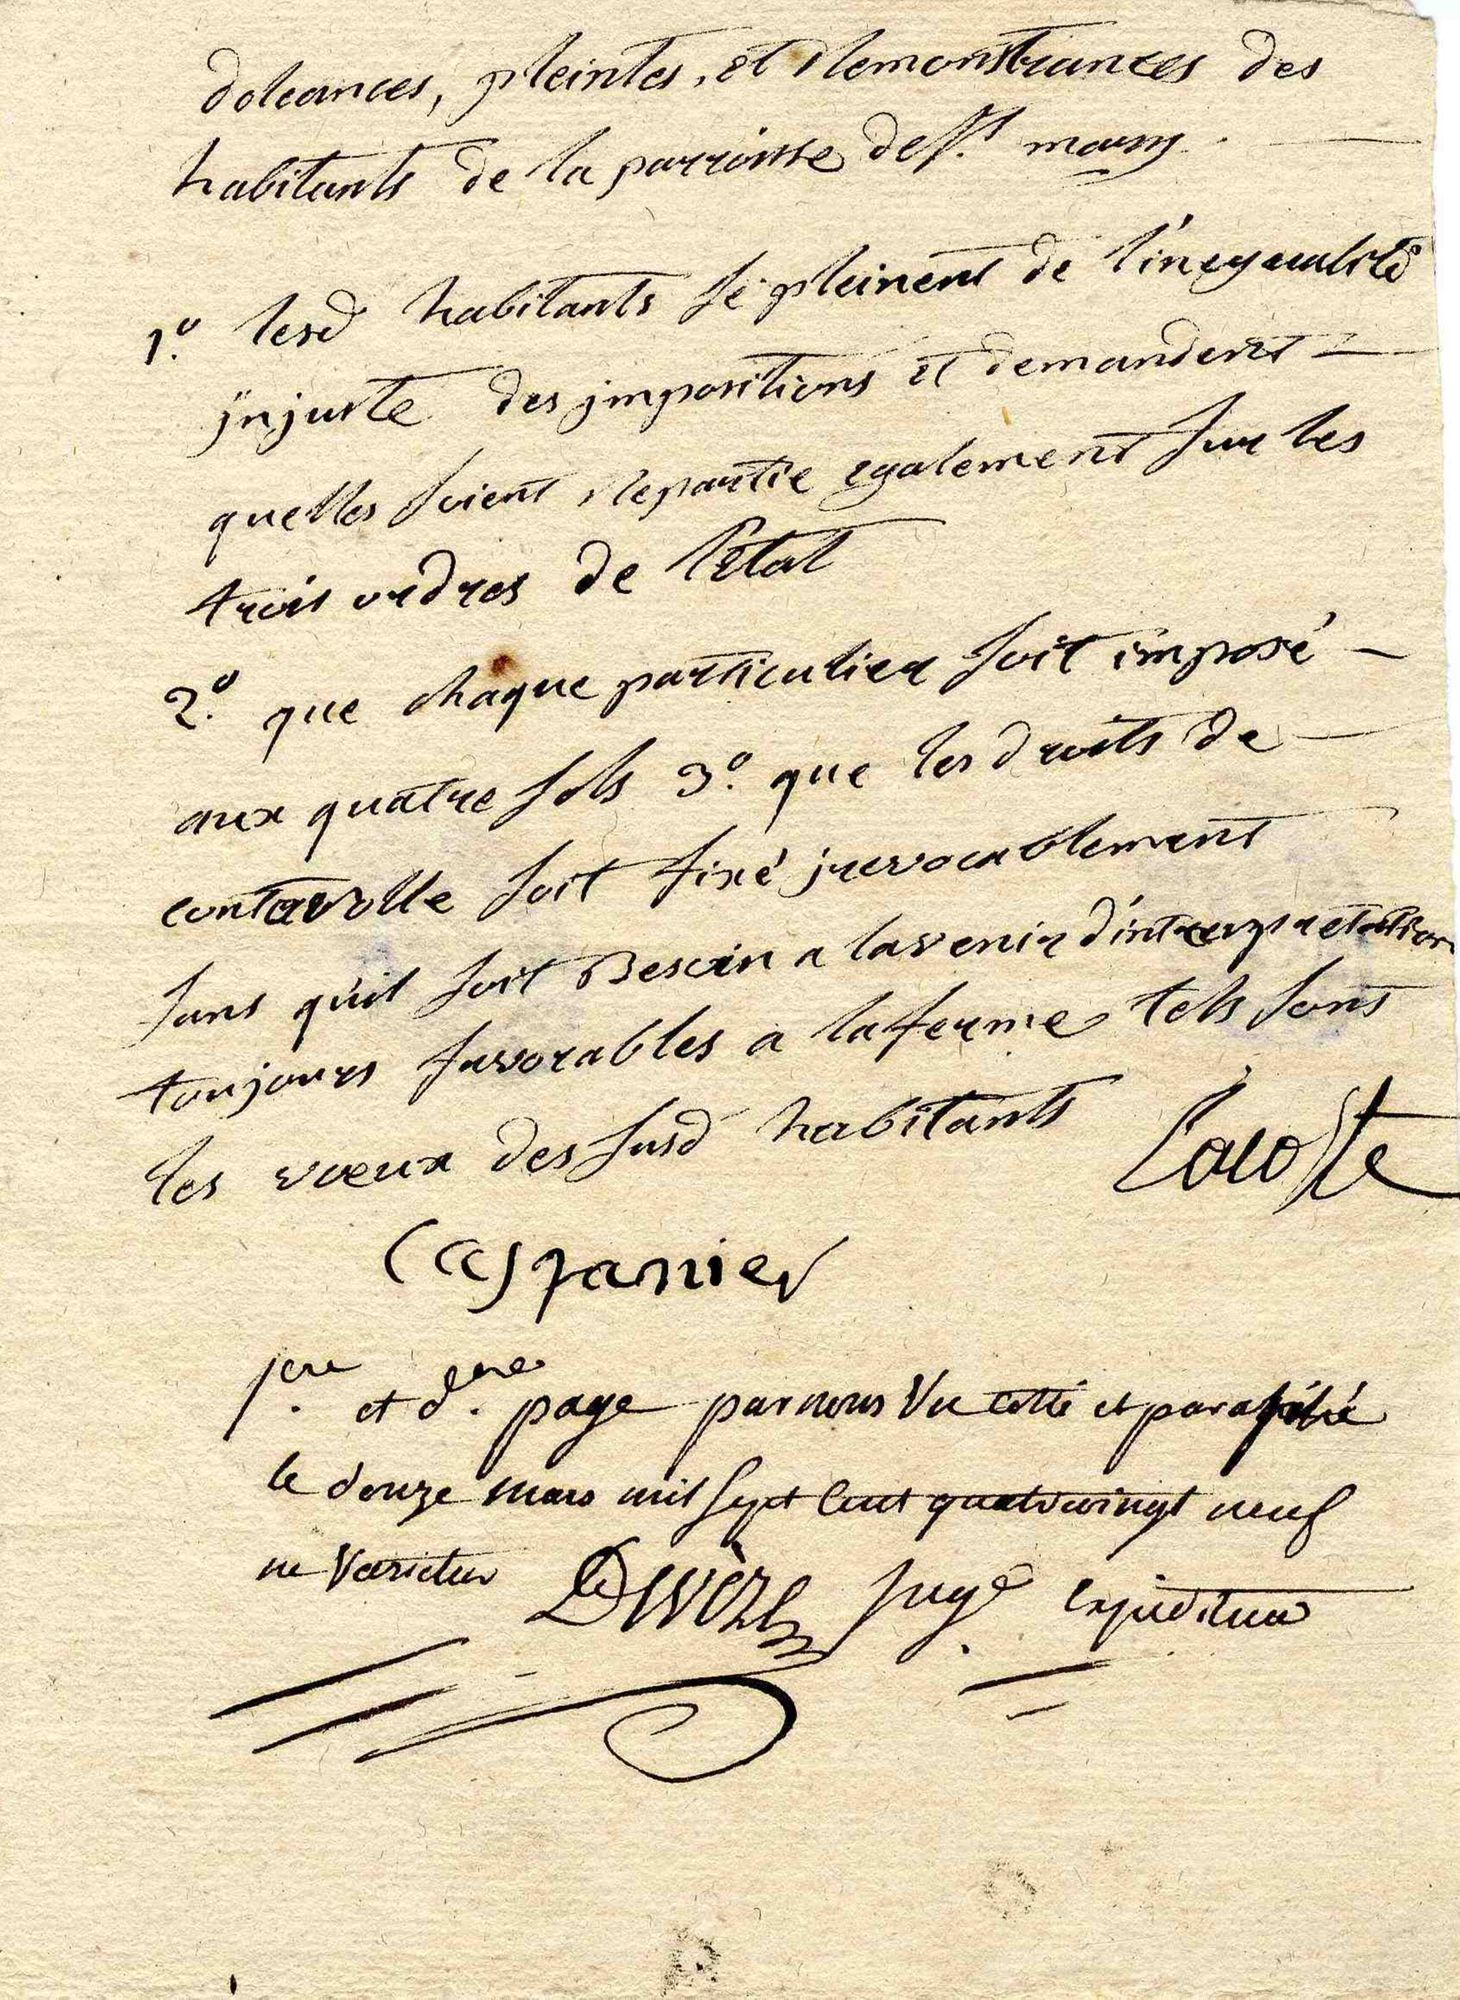 doleances, pleintes, et Remonstrances des
habitants de la parroisse de St. mary.
1.o lesd habitants se pleinent de l'inegualité
jnjuste des jmpositions et demandent
quelles soient Repartie egalement sur les
trois ordres de l'Etat
2.o que chaque particulier soit imposé
aux quatre sols 3.o que les droits de
controlle soit fixé jrevocablement
sans quil soit Besoin a lavenir d'interpretation
toujours favorables a la ferme tels sont
les vœux des susd habitants Lacoste
Caspanier
1.ere et d.ere page par nous Vu cotté et paraphé
le douze mars mil sept cent quatrevingt neuf
ne Varietur Devèze Juge